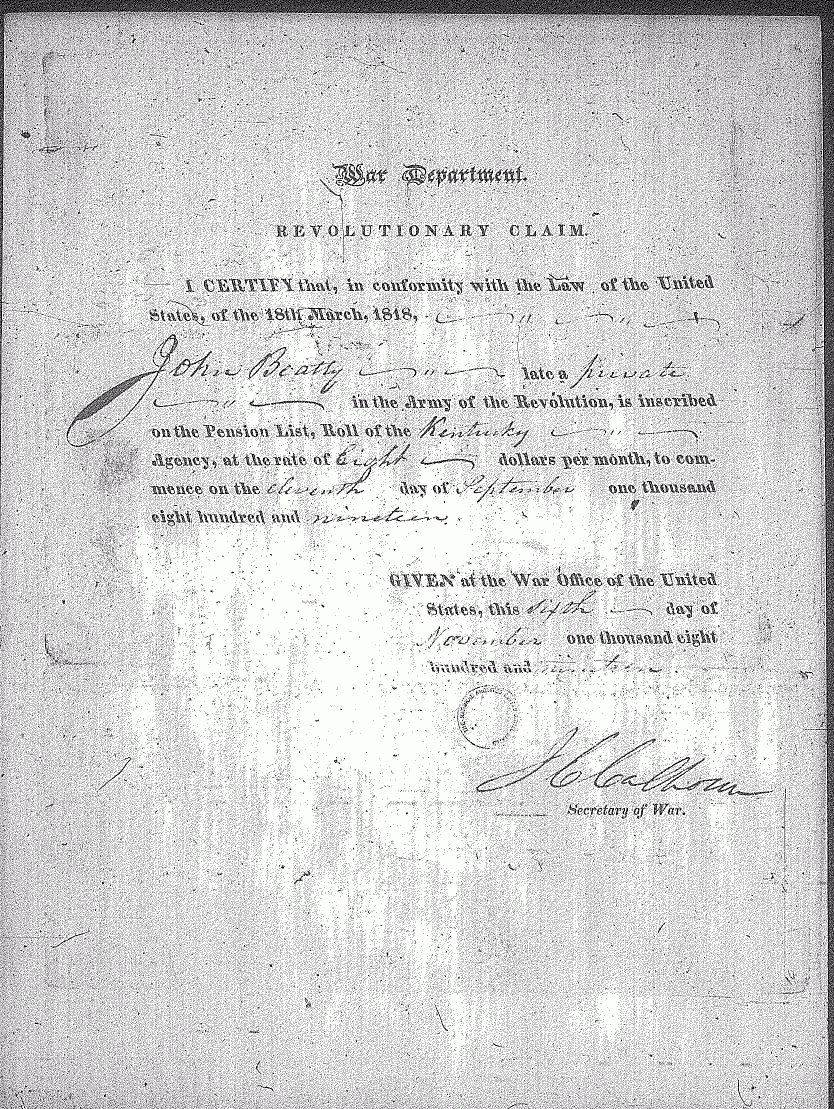 War Department.
REVOLUTIONARY CLAIM.
I CERTIFY that, in conformity with the Law of the United
States, of the 18th March, 1818,
John Beatty late a private
in the Army of the Revolution, is inscribed
on the Pension List, Roll of the Kentucky
Agency, at the rate of Eight dollars per month, to com-
mence on the eleventh day of September one thousand
eight hundred and nineteen.
GIVEN at the War Office of the United
States, this sixth day of
November one thousand eight
hundred and nineteen.
J C Calhoun
Secretary of War.